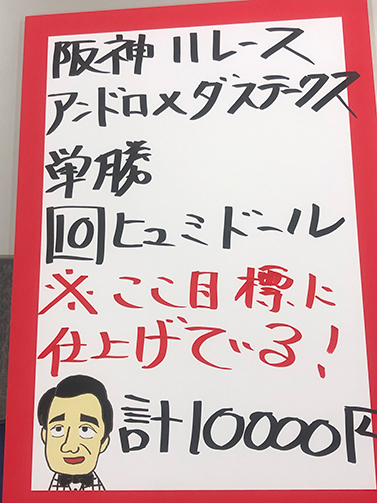 阪神11レース
アンドロメダステークス
単勝
10ヒュミドール
※ここ目標に
仕上げている!
計10000円